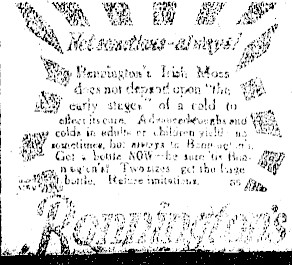 Not sometimes—always!
Bonnington's Irish Moss
does not depend upon "the
early stages" of a cold to
effect its cure. Advanced coughs and
colds in adults or children yield no
sometimes, but always to Bonnington's.
Get a bottle NOW—be sure its Bon-
nington's! Two sizes get the large
bottle. Refuse imitations.
Bonnington's